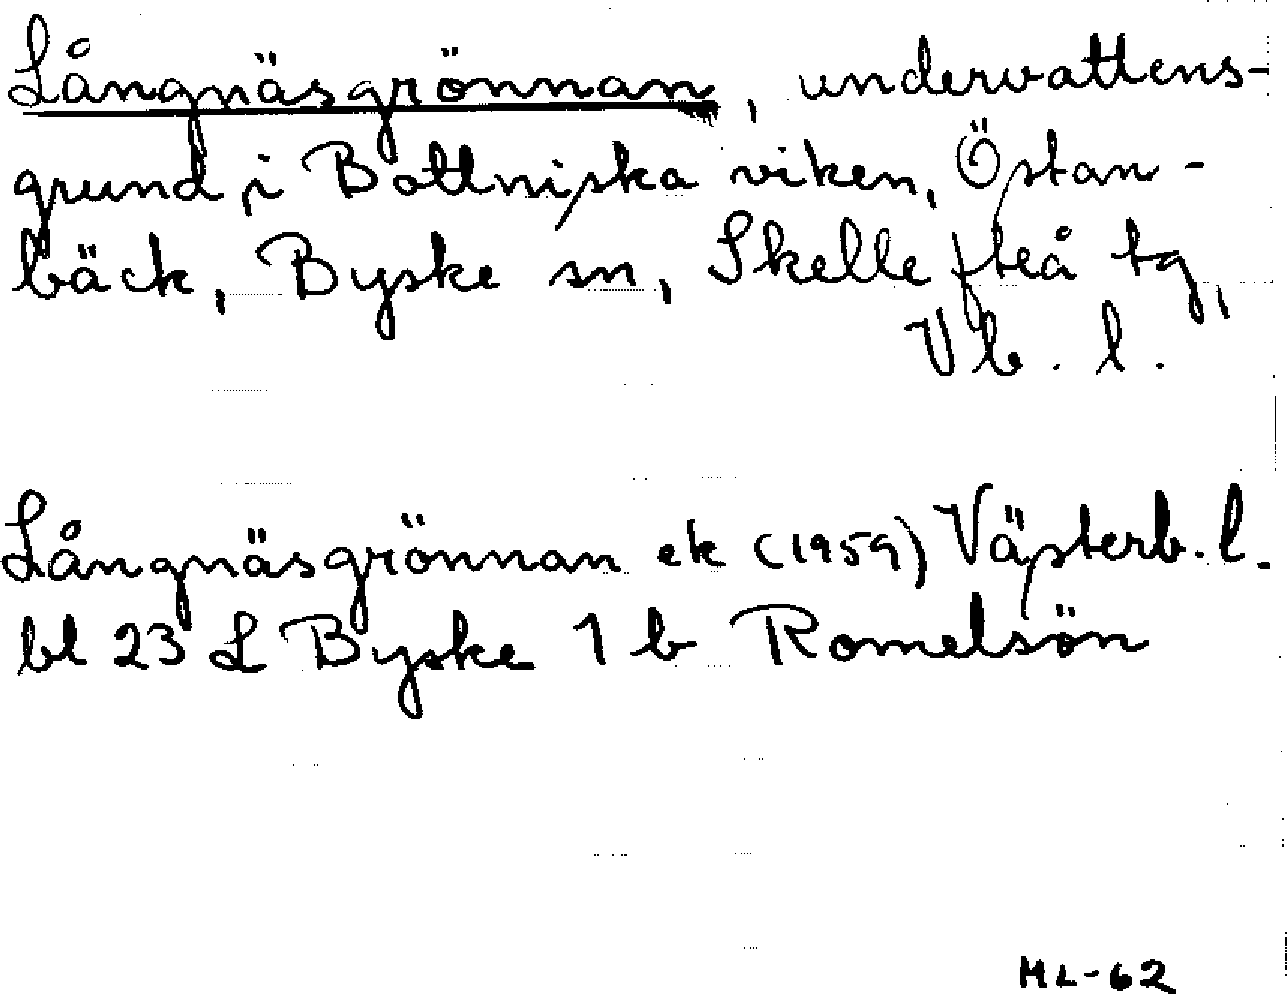 Långnäsgrönnan, undervattens-
grund i Bottniska viken, Östan-
bäck, Byske sn, Skellefteå tg,
Vb. l.
Långnäsgrönnan ek (1959) Västerb. l.
bl 23 L Byske 1 b Romelsön
ML-62